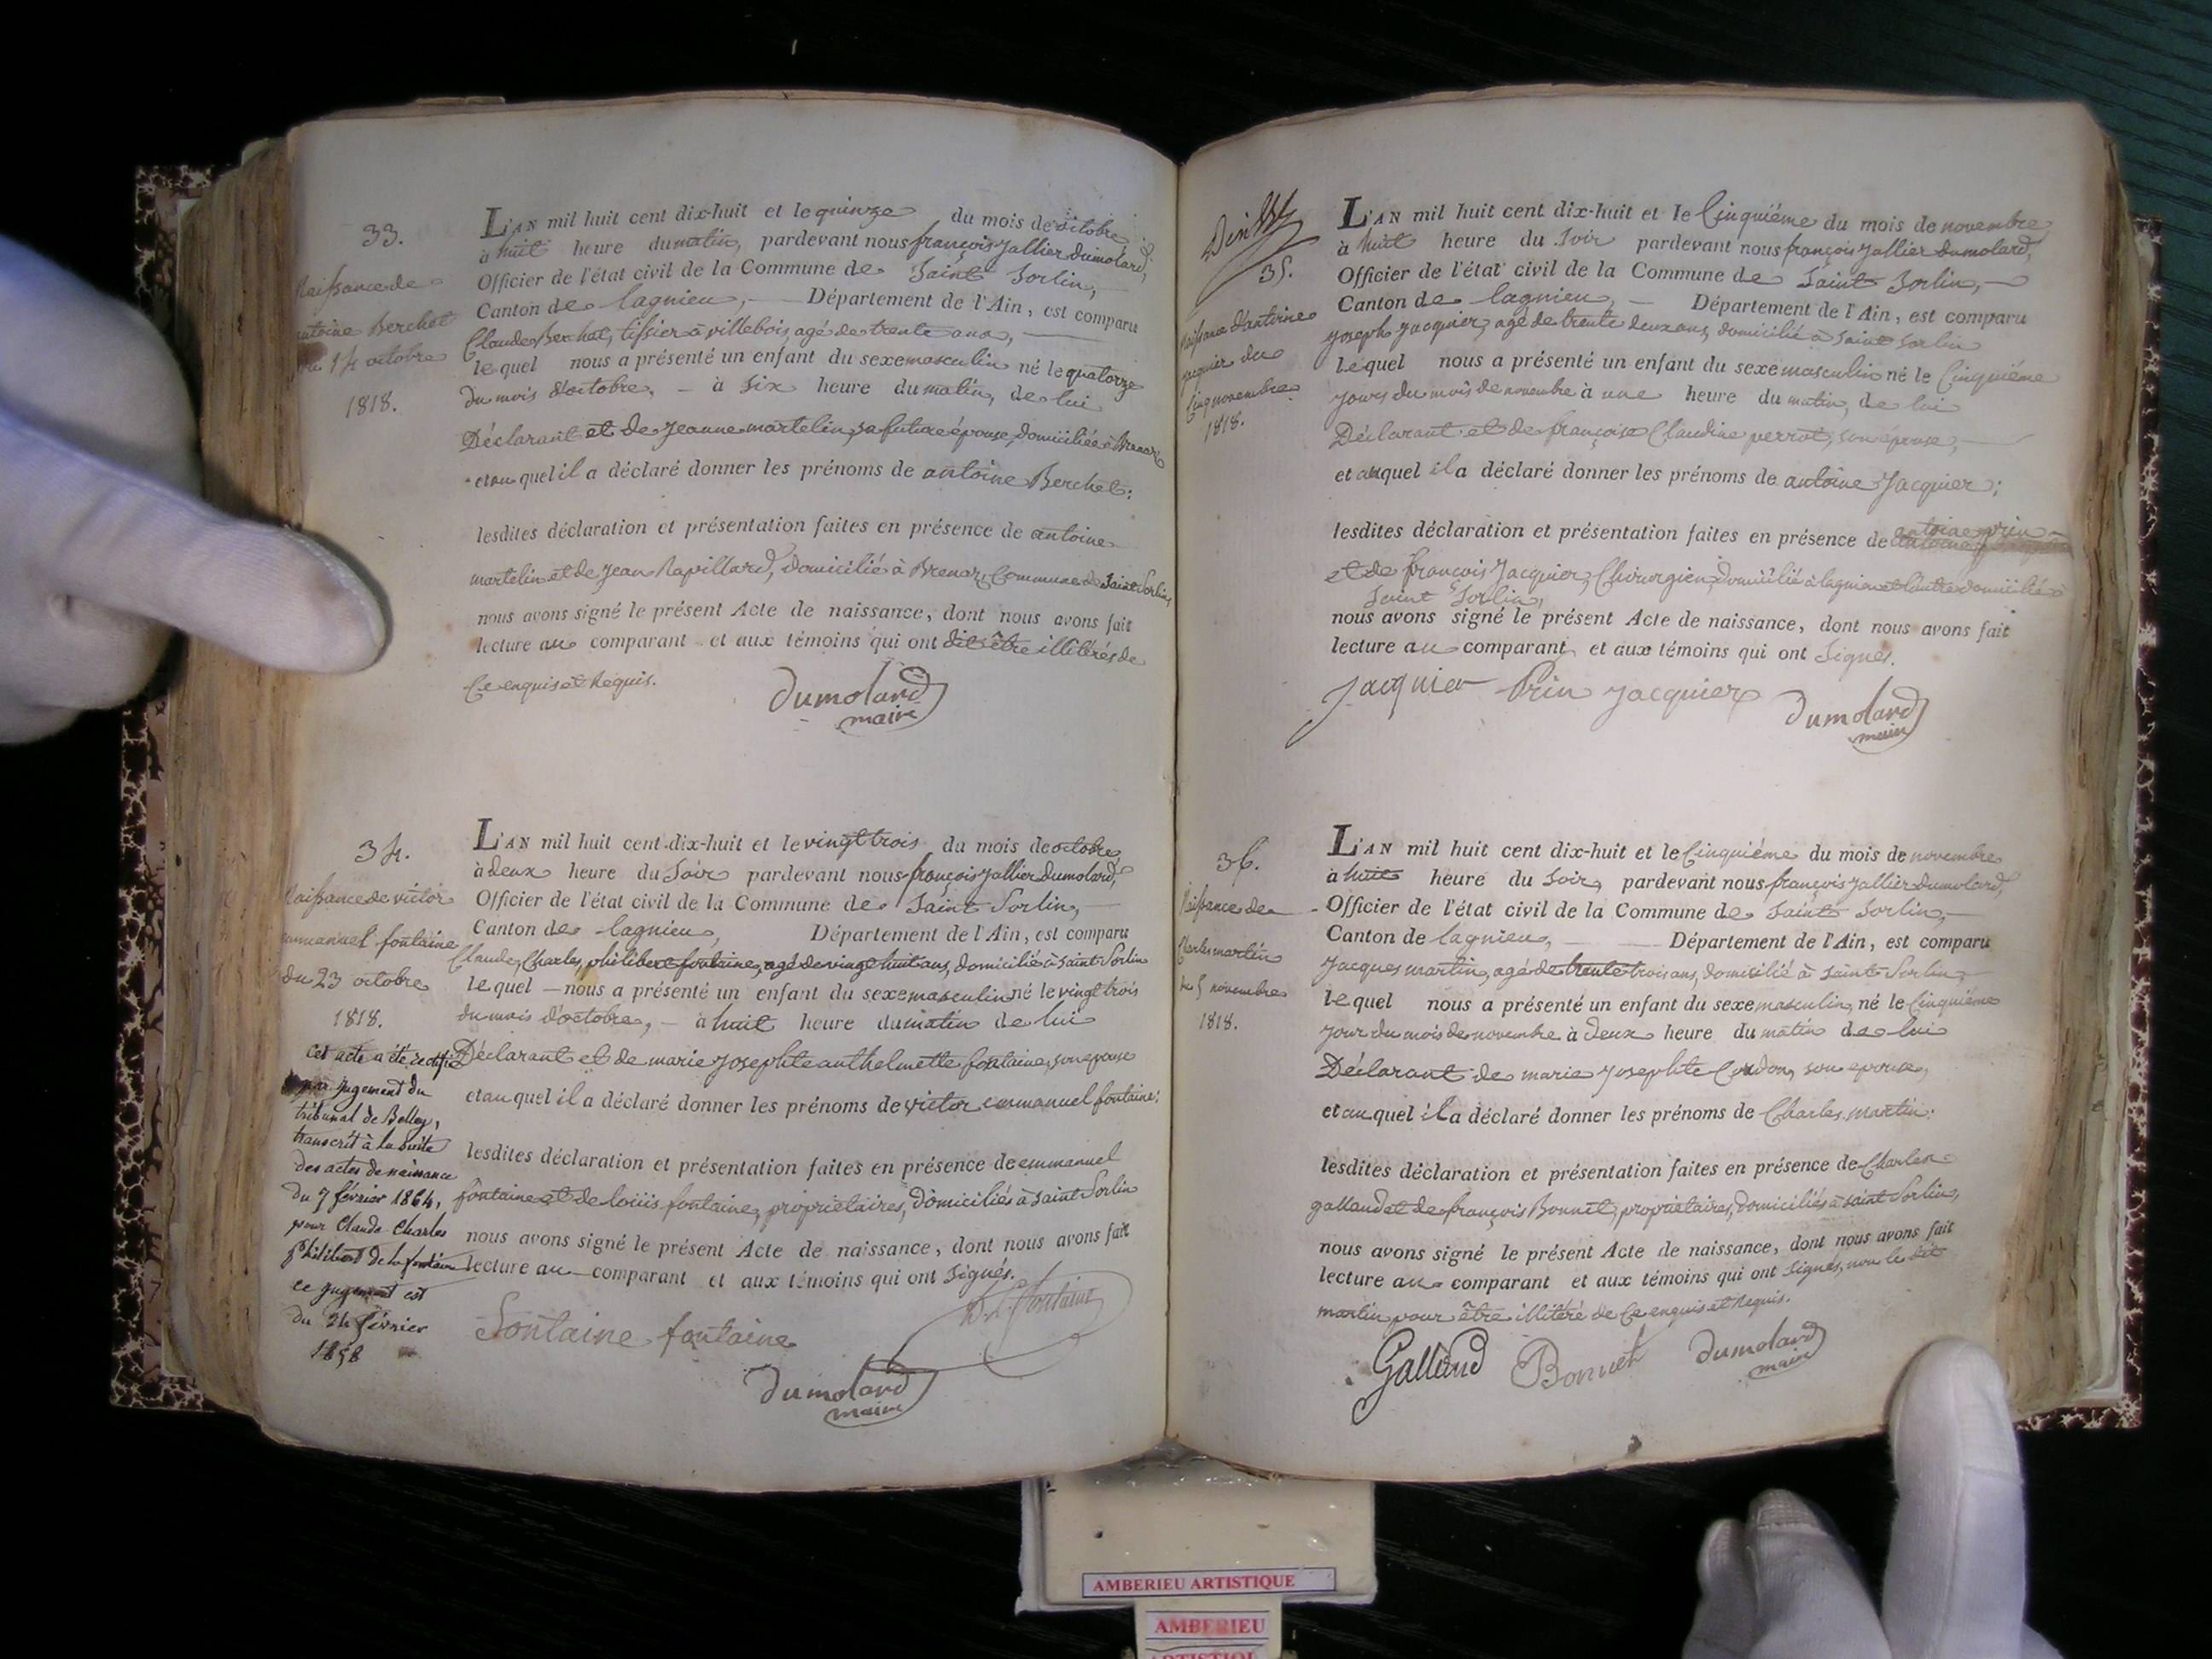 33.
Naissance de
antoine Berchet
du 14 octobre
1818.
L'AN mil huit cent dix-huit et le quinze du mois de octobre,
à huit heure du matin, pardevant nous françois jallier dumolard,
Officier de l'état civil de la Commune de Saint Sorlin,
Canton de lagnieu, Département de l'Ain, est comparu
Claude Berchet, tissier à villebois, agé de trente ans,
lequel nous a présenté un enfant du sexe masculin né le quatorze
du mois d'octobre, à six heure du matin, de lui
Déclarant et de jeanne martelin, sa future épouse, domiciliée à Brenaz
et au quel il a déclaré donner les prénoms de antoine Berchet:
lesdites déclaration et présentation faites en présence de antoine
martelin et de jean Rapillard, domicilié à Brenaz, Commune de Saint Sorlin,
nous avons signé le présent Acte de naissance, dont nous avons fait
lecture au comparant et aux témoins qui ont dit être illitérés de
Ce enquis et Requis.
Dumolard
maire
34.
Naissance de victor
emmanuel fontaine
du 23 octobre
1818.
Cet acte a été rectifié
par jugement du
tribunal de Belley,
transcrit à la suite
des actes de naissance
du 7 février 1864,
pour Claude-Charles
Philibert de la fontaine
ce jugement est
du 24 février
1858
L'AN mil huit cent dix-huit et le vingt trois du mois de octobre
à deux heure du Soir pardevant nous françois jallier dumolard,
Officier de l'état civil de la Commune de Saint Sorlin,
Canton de lagnieu, Département de l'Ain, est comparu
Claude, Charles, philibert fontaine, agé de vingt huit ans, domicilié à Saint Sorlin
lequel nous a présenté un enfant du sexe masculin né le vingt trois
du mois d'octobre, à huit heure du matin de lui
Déclarant et de marie josephte anthelmette fontaine, son epouse
et au quel il a déclaré donner les prénoms de victor emmanuel fontaine:
lesdites déclaration et présentation faites en présence de emmanuel
fontaine et de louis fontaine, propriétaires, domiciliés à saint Sorlin
nous avons signé le présent Acte de naissance, dont nous avons fait
lecture au comparant et aux témoins qui ont signés.
fontaine fontaine fontaine
Dumolard
maire
35.
Naissance d'antoine
jacquier du
Cinq novembre
1818.
L'AN mil huit cent dix-huit et le Cinquiéme du mois de novembre
à huit heure du Soir pardevant nous françois jallier dumolard,
Officier de l'état civil de la Commune de Saint Sorlin,
Canton de lagnieu, Département de l'Ain, est comparu
joseph jacquier, agé de trente deux ans, domicilié à Saint Sorlin
lequel nous a présenté un enfant du sexe masculin né le Cinquiéme
jours du mois de novembre à une heure du matin, de lui
Déclarant et de françoise Claudine perrot, son épouse,
et auquel il a déclaré donner les prénoms de antoine jacquier;
lesdites déclaration et présentation faites en présence de antoine prin
et de françois jacquier, Chirurgien, domicilié à lagnieu et l'autre domicilié à
Saint Sorlin,
nous avons signé le présent Acte de naissance, dont nous avons fait
lecture au comparant, et aux témoins qui ont Signés.
Jacquier Prin jacquier
Dumolard
maire
36.
Naissance de
Charles martin
du 5 novembre
1818.
L'AN mil huit cent dix-huit et le Cinquiéme du mois de novembre
à huit heure du Soir, pardevant nous françois jallier dumolard,
Officier de l'état civil de la Commune de Saint Sorlin,
Canton de lagnieu, Département de l'Ain, est comparu
jacques martin, agé de trente trois ans, domicilié à Saint Sorlin,
lequel nous a présenté un enfant du sexe masculin, né le Cinquiéme
jour du mois de novembre à deux heure du matin de lui
Déclarant de marie josephte Cordon, son epouse,
et au quel il a déclaré donner les prénoms de Charles martin:
lesdites déclaration et présentation faites en présence de Charles
galland et de françois Bonnet, propriétaires, domiciliés à saint Sorlin,
nous avons signé le présent Acte de naissance, dont nous avons fait
lecture au comparant et aux témoins qui ont Signés, non le dit
martin pour être illitéré de Ce enquis et Requis.
Galland Bonnet Dumolard
maire
AMBERIEU ARTISTIQUE
AMBERIEU
ARTISTIQUE